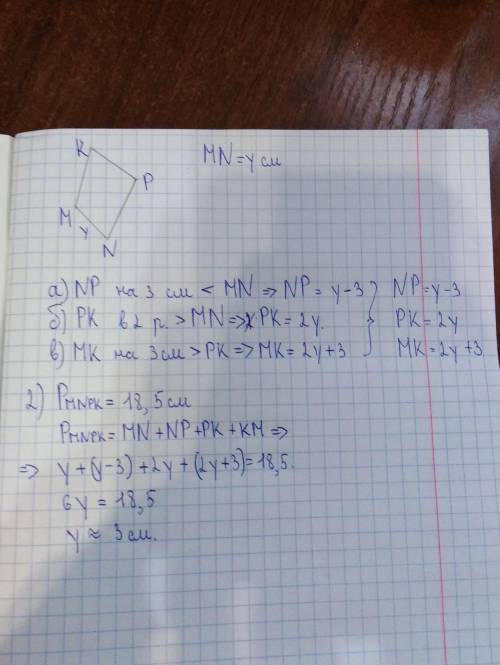 K
MN = y см
P
M
y
N
а) NP на 3 см < MN => NP = y-3 } NP = y-3
б) PK в 2 р. > MN => PK = 2y. PK = 2y
в) MK на 3 см > PK => MK = 2y+3 MK = 2y+3
2) PMNPK = 18,5 см
PMNPK = MN+NP+PK+KM =>
=> y+(y-3)+2y+(2y+3)=18,5.
6y = 18,5
y ≈ 3 см.